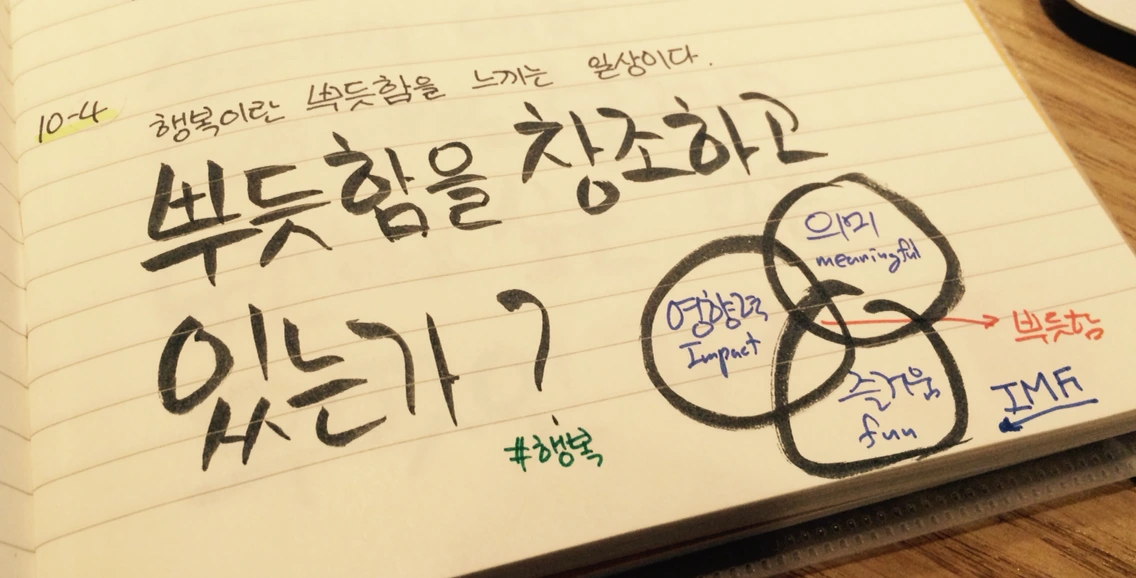 10-4
행복이란 뿌듯함을 느끼는 일상이다.
뿌듯함을 창조하고
있는가?
#행복
의미
meaningful
영향력
Impact
즐거움
fun
뿌듯함
IMF